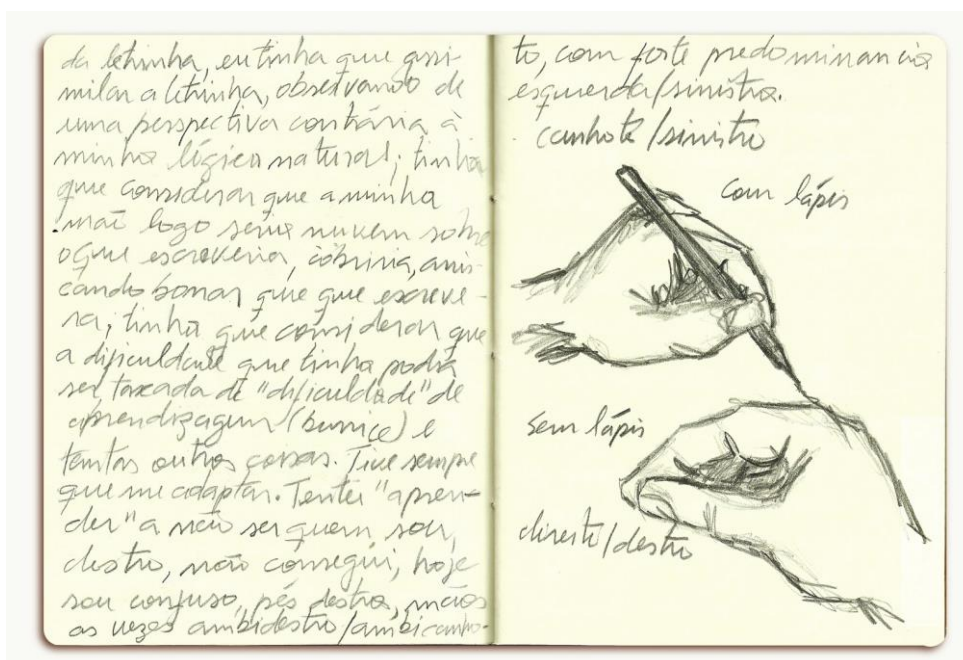 da letrinha, eu tinha que assi-
milar a letrinha, observando de
uma perspectiva contrária à
minha lógica natural; tinha
que considerar que a minha
mão logo seria nuvem sobre
o que escreveria, cobriria, arris-
cando borrar que que escreve-
ra; tinha que considerar que
a dificuldade que tinha podia
ser taxada de "dificuldade" de
aprendizagem (burrice) e
tantas outras coisas. Tive sempre
que me adaptar. Tentei "apren-
der" a não ser quem sou,
destro, não consegui, hoje
sou confuso, pés destro, mãos
as vezes ambidestro/ambicanho-
to, com forte predominancia
esquerda/sinistra.
canhota/sinistro
com lápis
sem lápis
direito/destro